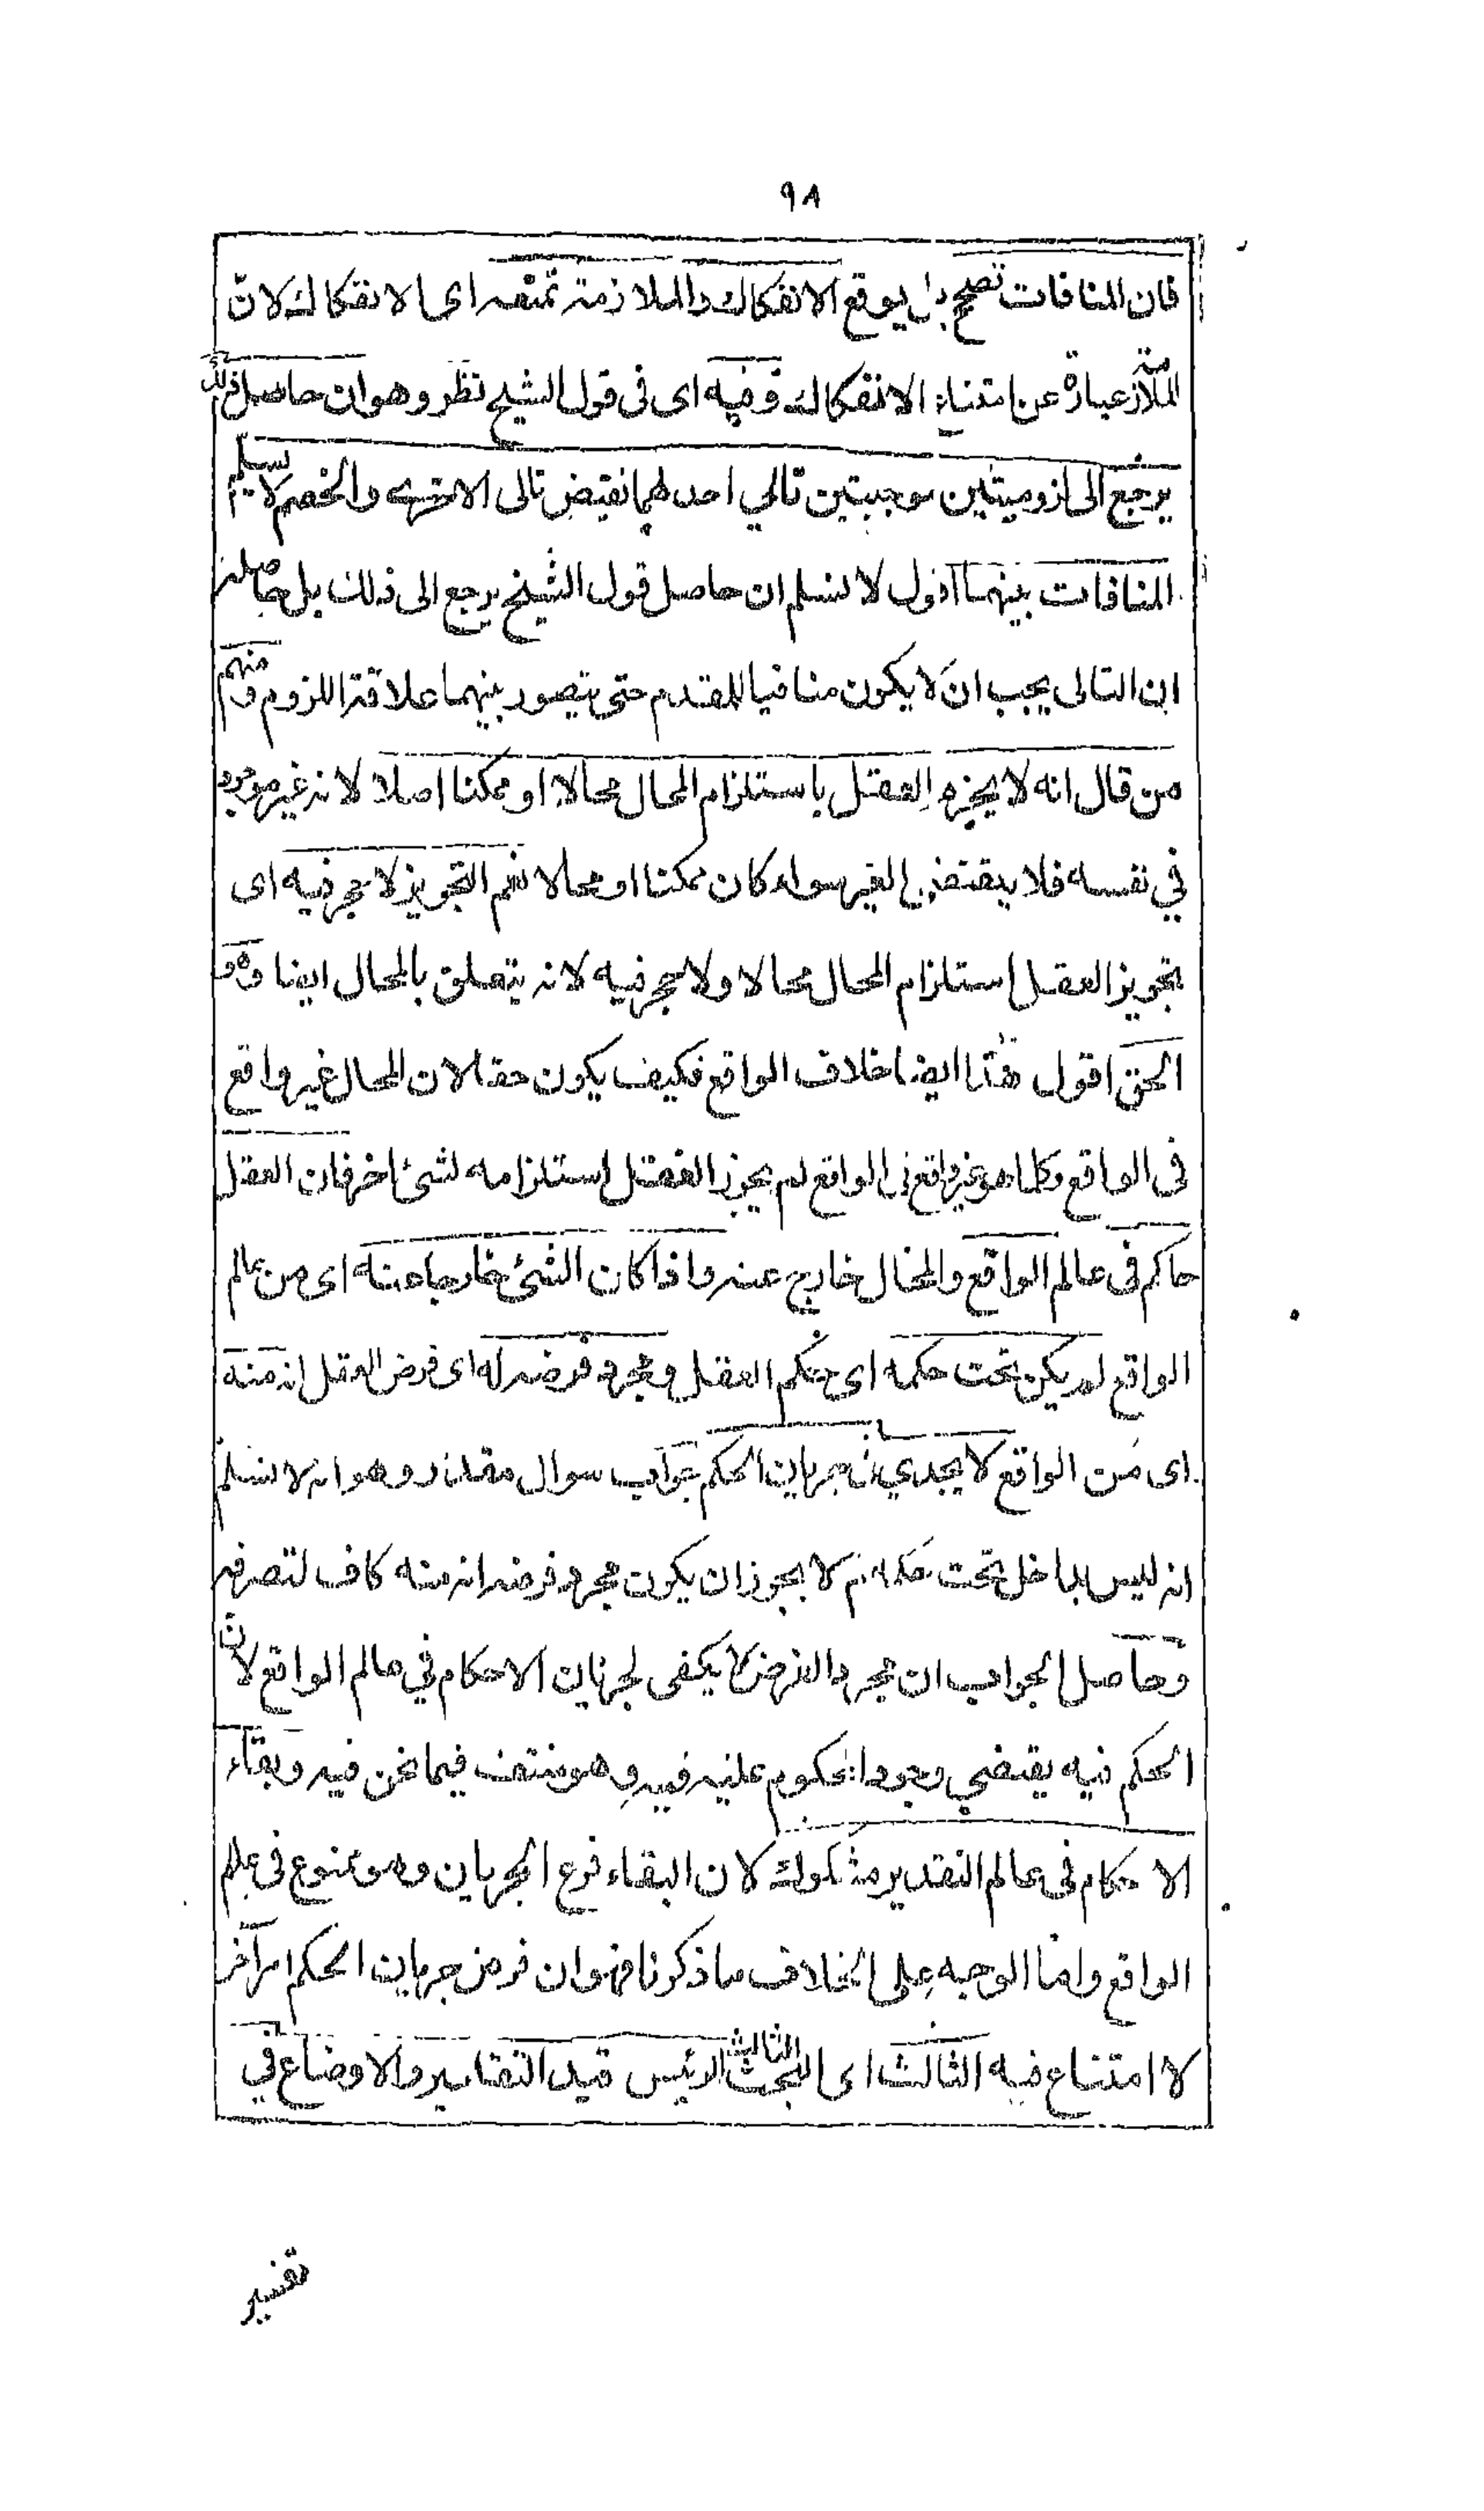 ٩٨
فان المنافات تصحح بل يوقع الانفكاك والملازمة تمنعه اى الانفكاك لانّ
الملازمة عبارة عن امتناع الانفكاك وفيه اى فى قول الشيخ نظر وهو ان حاصل ذلك
يرجع الى لزوميتين موجبتين تالى احدهما نقيض تالى الاخرى والخصم لا يسلم
المنافات بينهما اقول لا نسلم ان حاصل قول الشيخ يرجع الى ذلك بل حاصله
ان التالى يجب ان لا يكون منافيا للمقدم حتى يتصور بينهما علاقة اللزوم ومنهم
من قال انه لا يجزم العقل باستلزام المحال محالا او ممكنا اصلا لانه غير موجود
في نفسه فلا يقتضى الغير سواء كان ممكنا او محالا نعم التجويز لا حجر فيه اى
تجويز العقل استلزام المحال محالا ولا حجر فيه لانه يتعلق بالمحال ايضا وهو
الحق اقول هذا ايضا خلاف الواقع فكيف يكون حقا لان المحال غير واقع
فى الواقع وكلما هو غير واقع فى الواقع لم يجوز العقل استلزامه لشئ اخر فان العقل
حاكم فى عالم الواقع والمحال خارج عنه واذا كان الشئ خارجا عنه اى من عالم
الواقع لم يكن تحت حكمه اى حكم العقل ومجرد فرضه له اى فرض العقل انه منه
اى من الواقع لا يجدي فى جريان الحكم جواب سوال مقدر وهو انه لا نسلم
انه ليس بداخل تحت حكمه لم لا يجوز ان يكون مجرد فرضه انه منه كاف لتصرفه
وحاصل الجواب ان مجرد الفرض لا يكفى لجريان الاحكام في عالم الواقع لان
الحكم فيه يقتضي وجود المحكوم عليه فيه وهو منتف فيما نحن فيه وبقاء
الاحكام فى عالم التقدير مشكوك لان البقاء فرع الجريان وهو ممنوع فى عالم
الواقع واما الوجه على الخلاف ما ذكرنا فهو ان فرض جريان الحكم امر آخر
لا امتناع فيه الثالث اى البحث الثالث الرئيس قيد التقادير والاوضاع في
تفسير